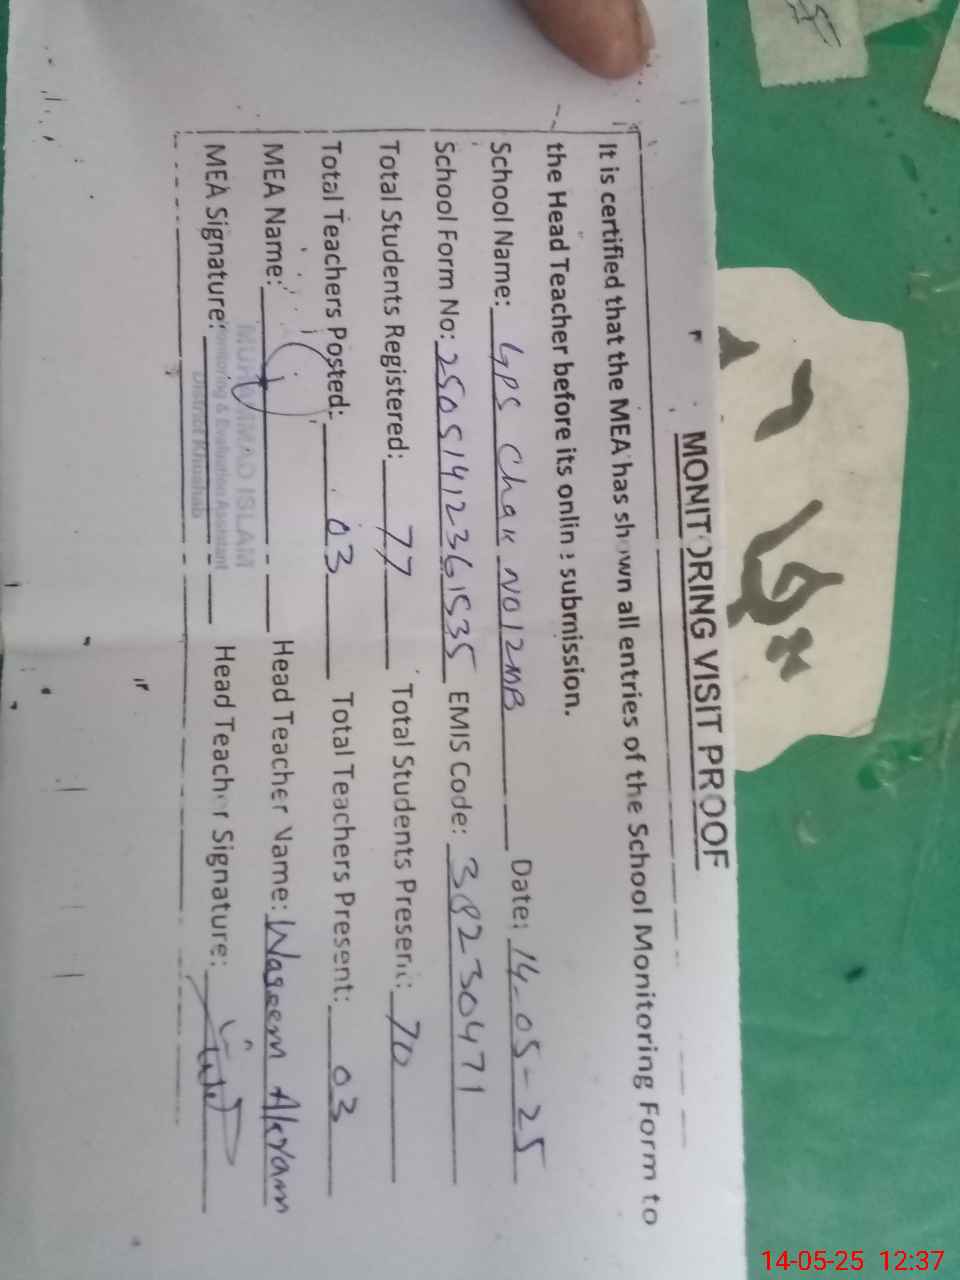 MONITORING VISIT PROOF
It is certified that the MEA has shown all entries of the School Monitoring Form to
the Head Teacher before its online submission.
School Name: GPS Chak No 12MB Date: 14-05-25
School Form No: 25051412361535 EMIS Code: 38230471
Total Students Registered: 77 Total Students Present: 70
Total Teachers Posted: 03 Total Teachers Present: 03
MEA Name: Head Teacher Name: Waseem Akram
MUHAMMAD ISLAM
MEA Signature: Head Teacher Signature:
Monitoring & Evaluation Assistant
District Khushab
14-05-25 12:37